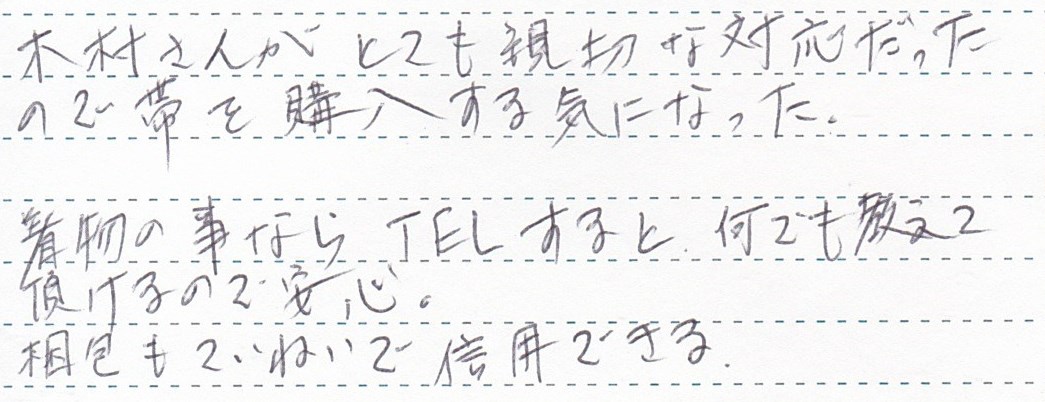 木村さんがとても親切な対応だった
ので帯を購入する気になった。
着物の事ならTELすると、何でも教えて
頂けるので安心。
梱包もていねいで信用できる.